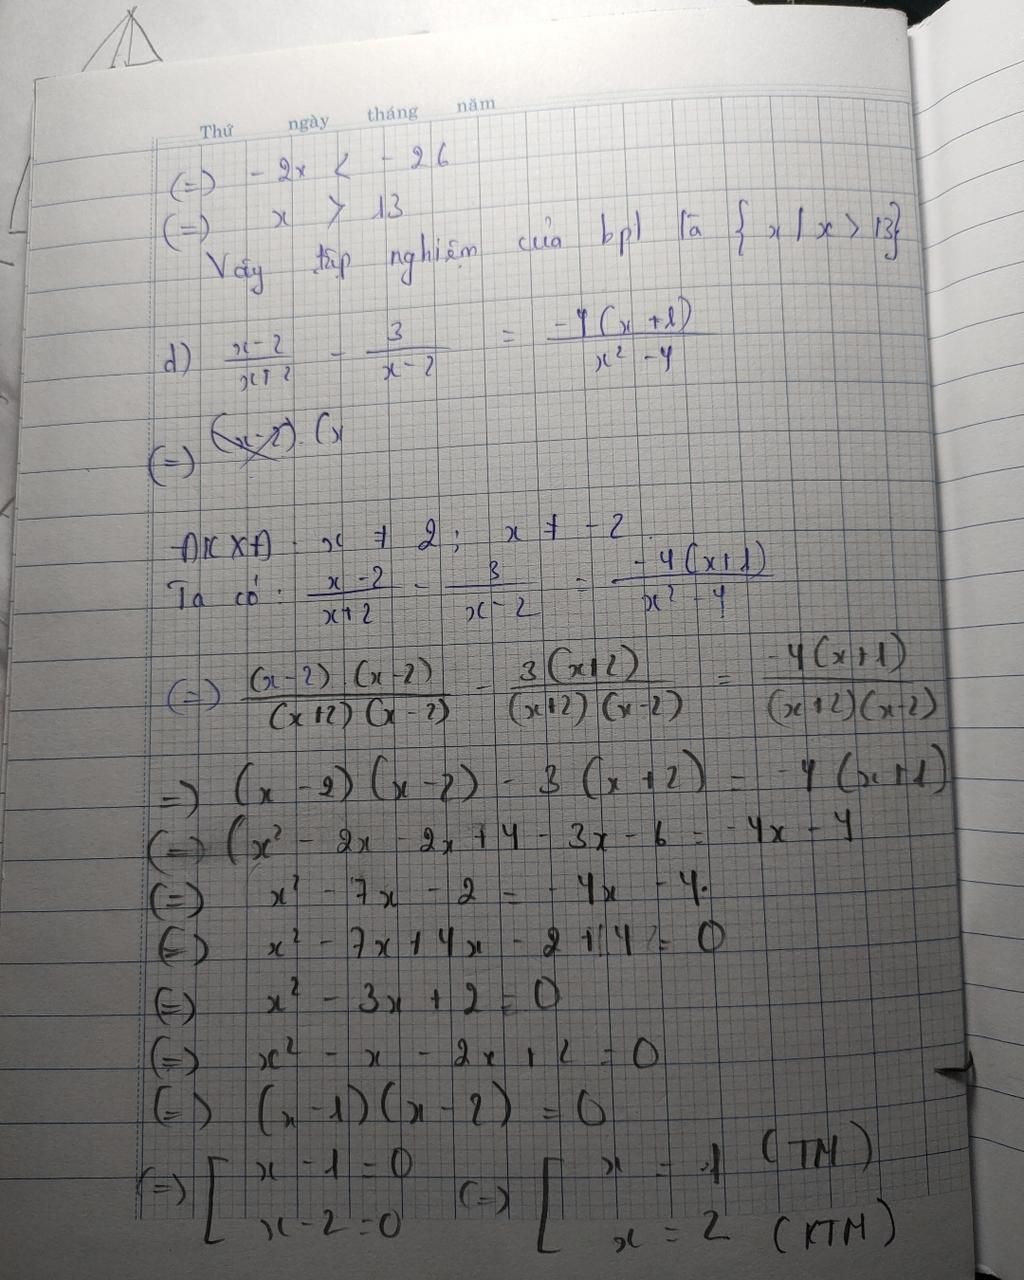 Thứ ngày tháng năm
(=) - 2x < - 26
(=) x > 13
Vậy tập nghiệm của bpt là { x / x > 13}
d) x-2/x+2 - 3/x-2 = -4(x+1)/x² -4
(=) (x-2). (x
ĐKXĐ: x ≠ 2; x ≠ -2.
Ta có: x-2/x+2 - 3/x-2 = -4(x+1)/x² -4
(=) (x-2).(x-2)/(x+2)(x-2) - 3(x+2)/(x+2)(x-2) = -4(x+1)/(x+2)(x-2)
=) (x-2)(x-2) - 3(x+2) = -4(x+1)
(=) (x² - 2x - 2x + 4 - 3x - 6 = -4x - 4
(=) x² - 7x - 2 = -4x - 4.
(=) x² - 7x + 4x - 2 + 4 = 0
(=) x² - 3x + 2 = 0
(=) x² - x - 2x + 2 = 0
(=) (x-1)(x-2) = 0
(=) [ x - 1 = 0 (=) [ x = 1 (TM)
x - 2 = 0 x = 2 (KTM)